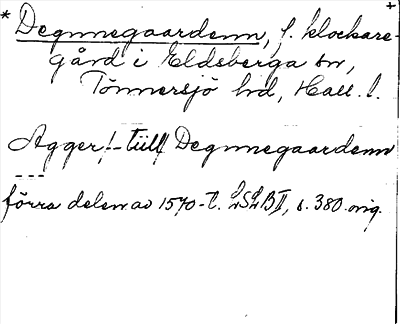 * Degnnegaardenn, f. klockare- +
gård i Eldsberga sn,
Tönnersjö hd, Hall. l.
Agger !- tiill Degnnegaardenn
förra delen av 1570-t. LSLB II, s. 380. orig.